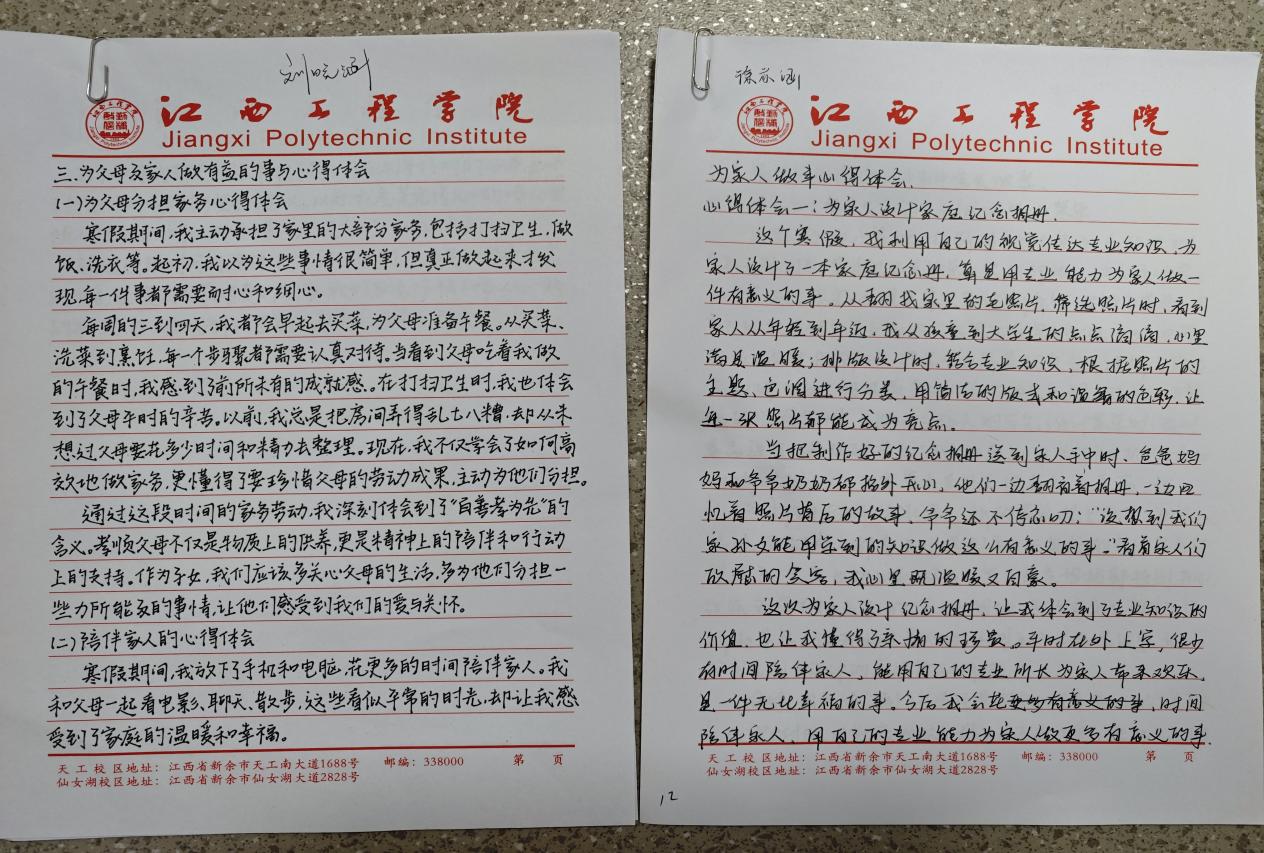 刘晓涵
江西工程学院
Jiangxi Polytechnic Institute
三、为父母及家人做有益的事与心得体会
(一)为父母分担家务心得体会
寒假期间,我主动承担了家里的大部分家务,包括打扫卫生,做
饭、洗衣等。起初,我以为这些事情很简单,但真正做起来才发
现,每一件事都需要耐心和细心。
每周的三到四天,我都会早起去买菜,为父母准备午餐。从买菜、
洗菜到烹饪,每一个步骤都需要认真对待。当看到父母吃着我做
的午餐时,我感到了前所未有的成就感。在打扫卫生时,我也体会
到了父母平时的辛苦。以前,我总是把房间弄得乱七八糟,却从未
想过父母要花多少时间和精力去整理。现在,我不仅学会了如何高
效地做家务,更懂得了要珍惜父母的劳动成果,主动为他们分担。
通过这段时间的家务劳动,我深刻体会到了“百善孝为先”的
含义。孝顺父母不仅是物质上的供养,更是精神上的陪伴和行动
上的支持。作为子女,我们应该多关心父母的生活,多为他们分担一
些力所能及的事情,让他们感受到我们的爱与关怀。
(二)陪伴家人的心得体会
寒假期间,我放下了手机和电脑,花更多的时间陪伴家人。我
和父母一起看电影、聊天、散步,这些看似平常的时光,却让我感
受到了家庭的温暖和幸福。
天工校区地址:江西省新余市天工南大道1688号 邮编:338000 第 页
仙女湖校区地址:江西省新余市仙女湖大道2828号
涵
江西工程学院
Jiangxi Polytechnic Institute
为家人做事心得体会.
心得体会一:为家人设计家庭纪念相册.
这个寒假,我利用自己的视觉传达专业知识,为
家人设计了一本家庭纪念册,算是用专业能力为家人做一
件有意义的事。从翻找家里的老照片,筛选照片时,看到
家人从年轻到年迈,我从孩童到大学生的点点滴滴,心里
满是温暖;排版设计时,结合专业知识,根据照片的
主题、色调进行分类,用简洁的版式和温馨的色彩,让
每一张照片都能成为亮点。
当把制作好的纪念相册送到家人手中时,爸爸妈
妈和爷爷奶奶都格外开心,他们一边翻看着相册,一边回
忆着照片背后的故事,爷爷还不停念叨:“没想到我们
家孙女能用学到的知识做这么有意义的事。”看着家人们
欣慰的笑容,我心里既温暖又自豪。
这次为家人设计纪念相册,让我体会到了专业知识的
价值,也让我懂得了亲情的珍贵。平时在外上学,很少
有时间陪伴家人,能用自己的专业所长为家人带来欢乐,
是一件无比幸福的事。今后我会花更多有意义的事,时间
陪伴家人,用自己的专业能力为家人做更多有意义的事.
天工校区地址:江西省新余市天工南大道1688号 邮编:338000 第 页
仙女湖校区地址:江西省新余市仙女湖大道2828号
12